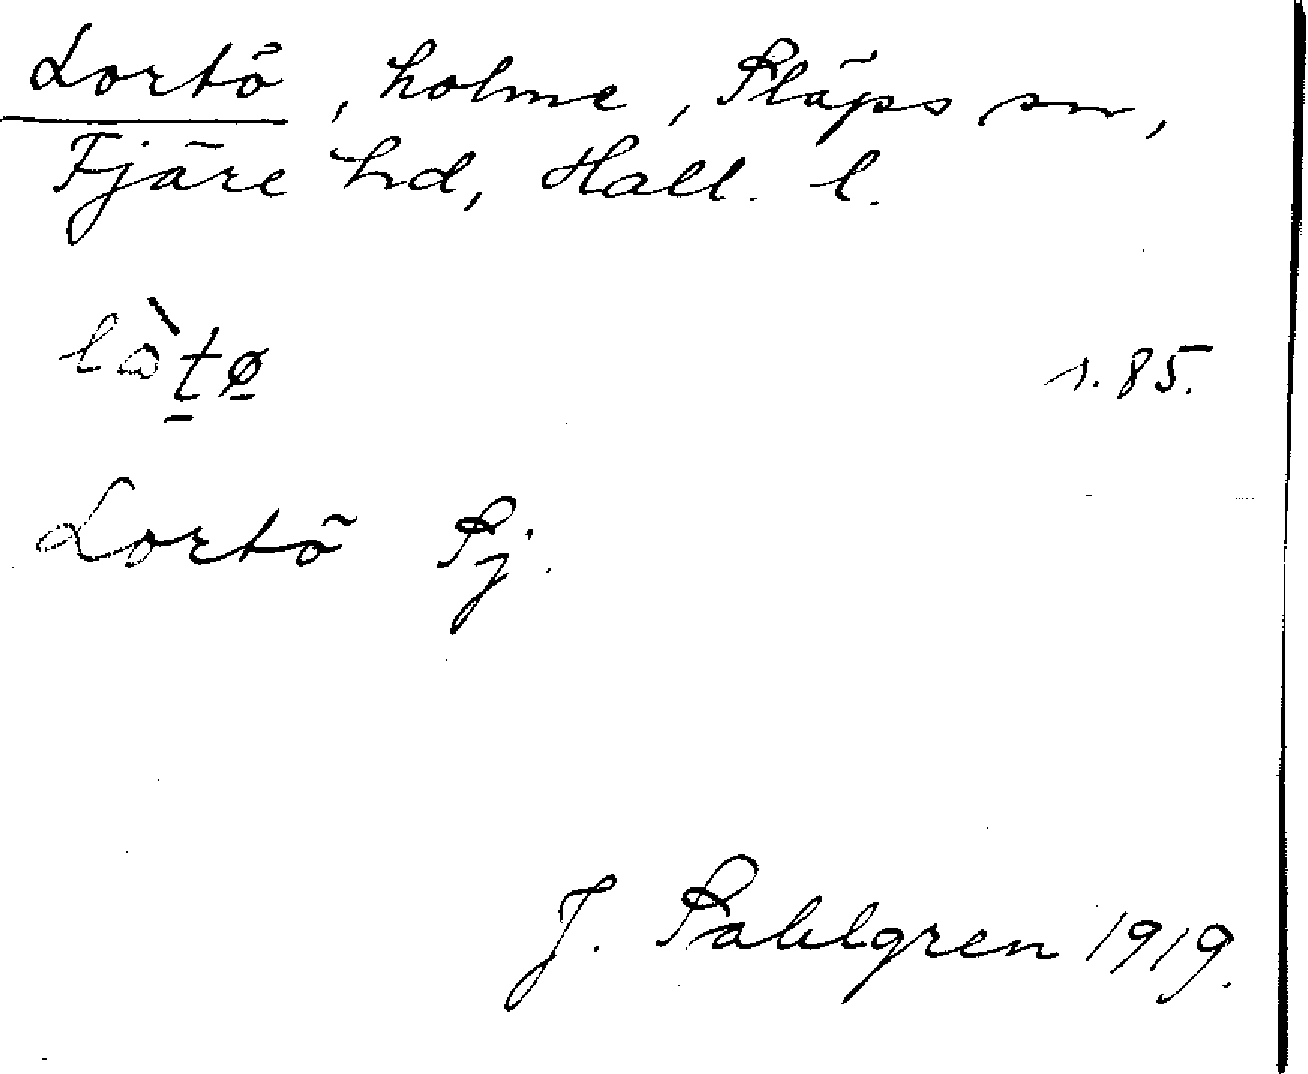 Lortö, holme, Släps sn,
Fjäre hd, Hall. l.
s. 85.
Lortö Sj.
J. Sahlgren 1919.